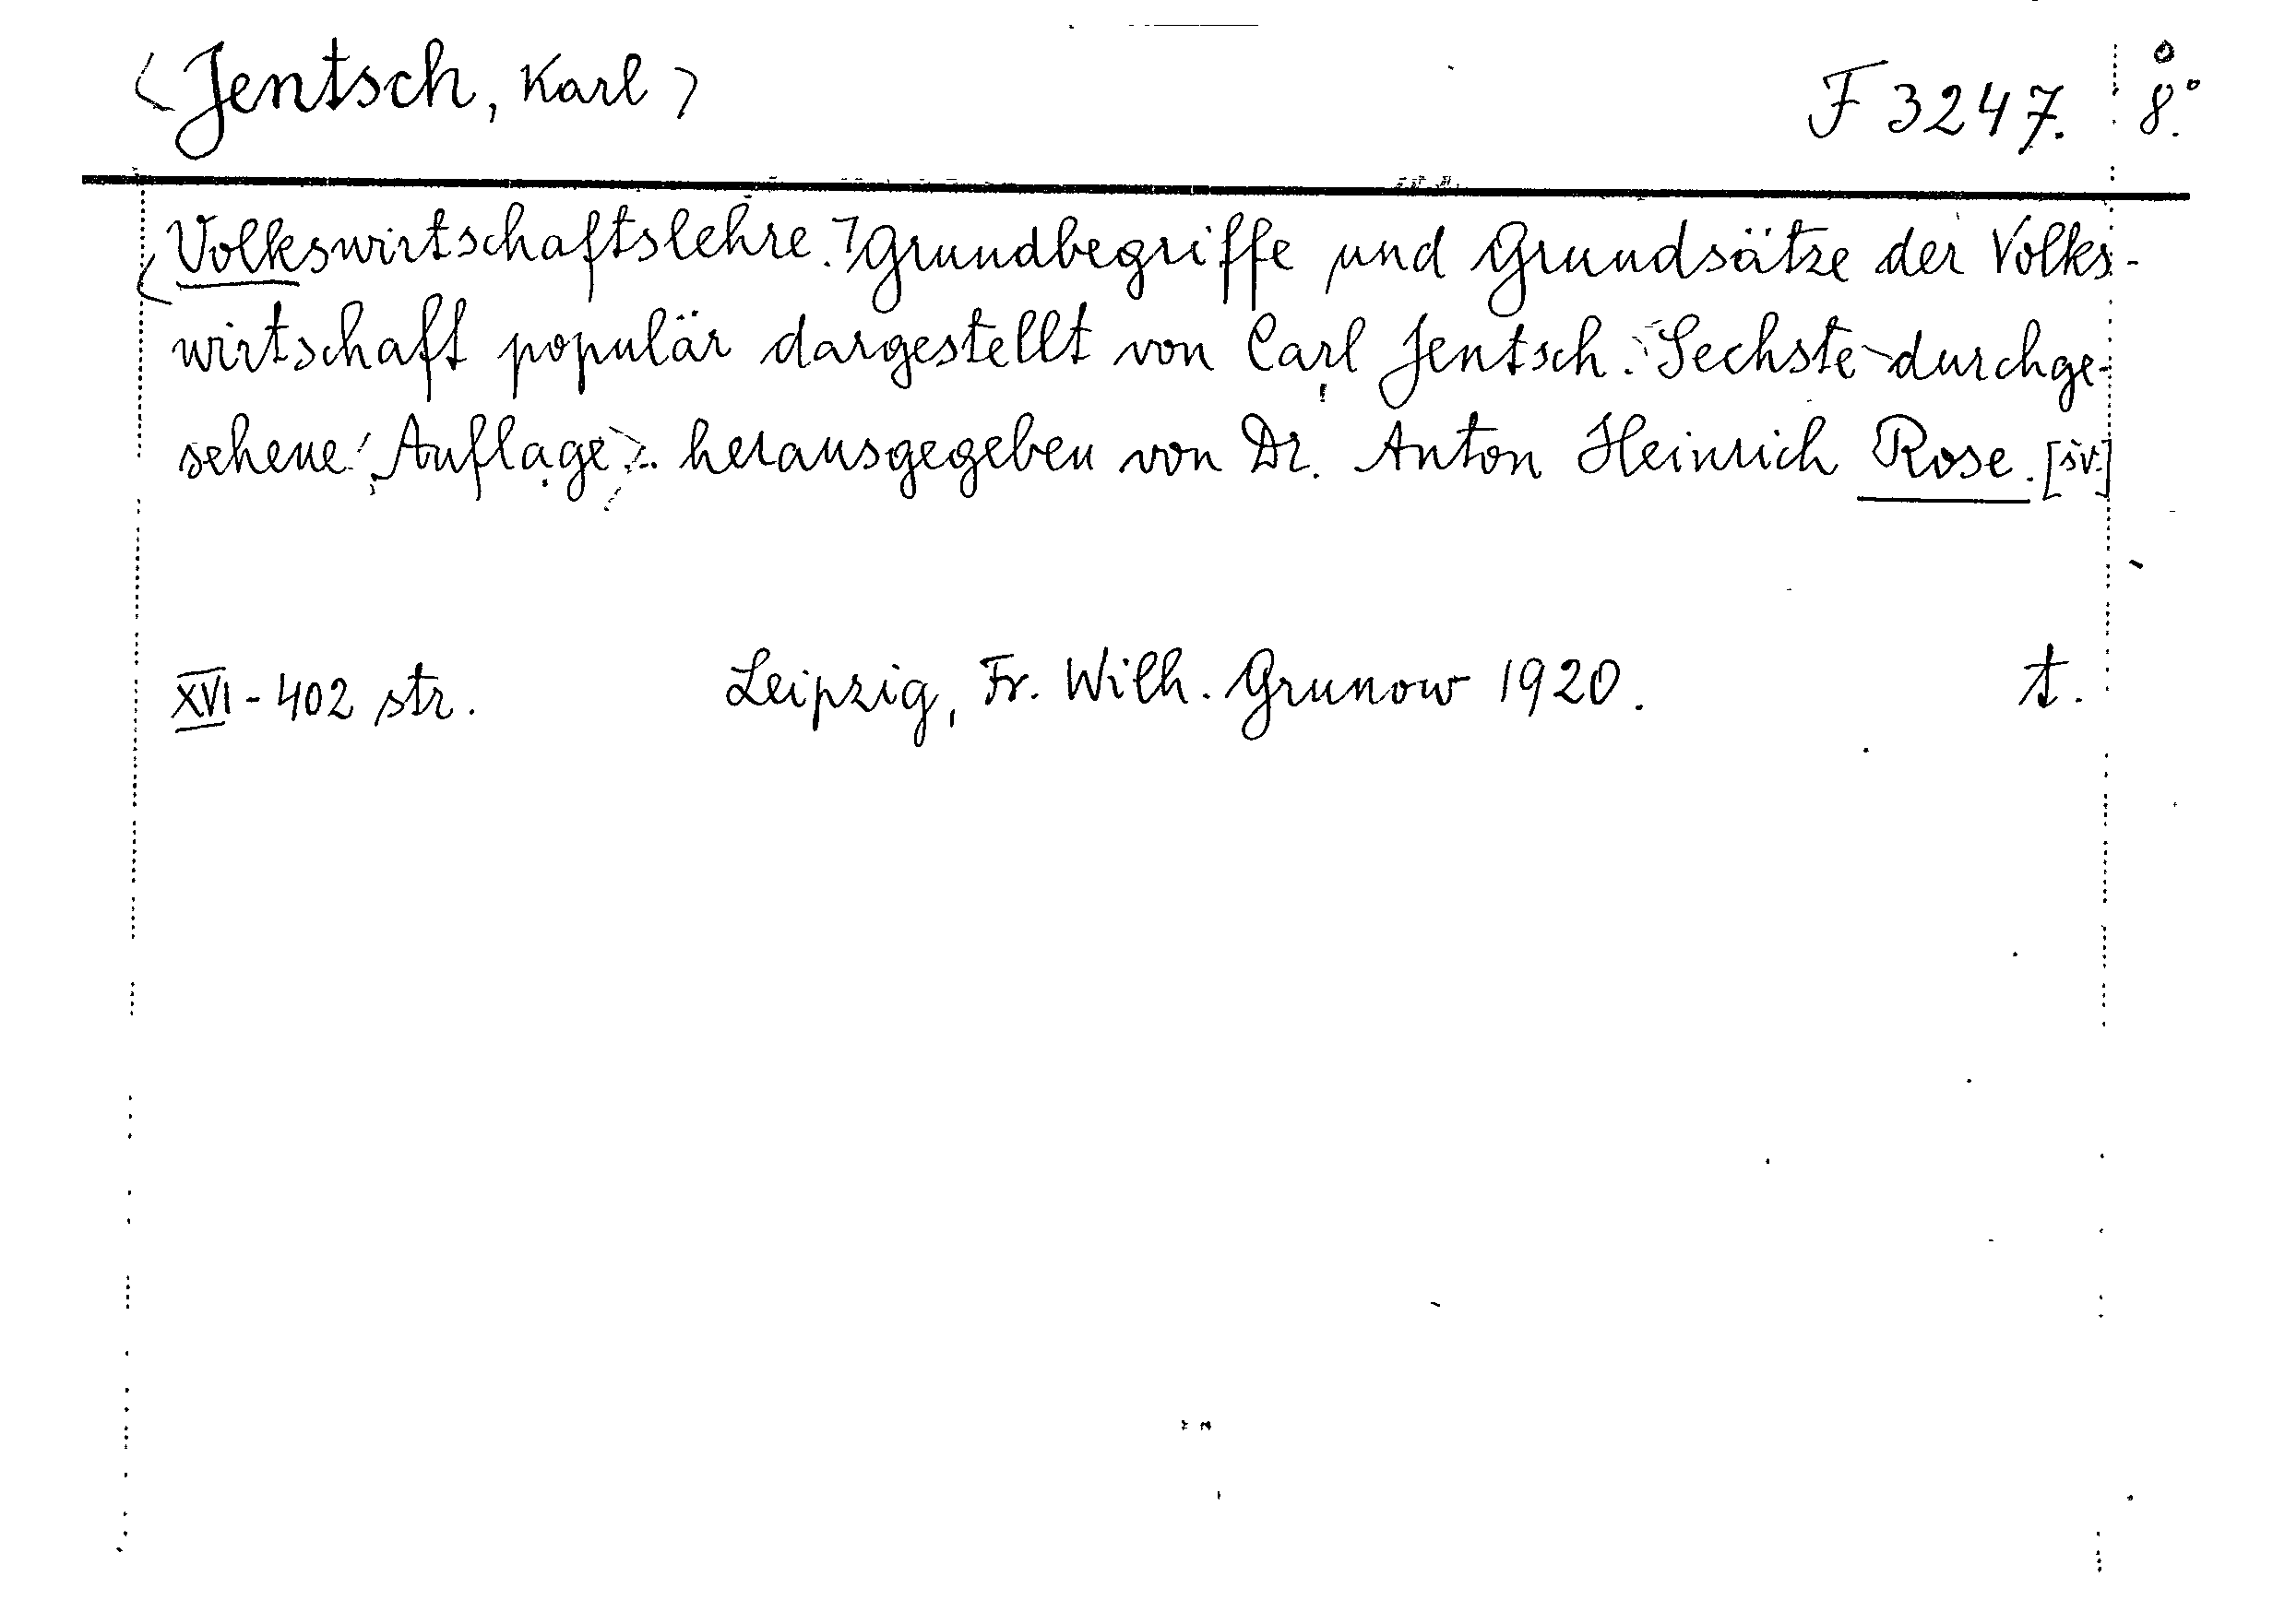 <Jentsch, Karl> F 3247. 8°.
<Volkswirtschaftslehre.> Grundbegriffe und Grundsätze der Volks-
wirtschaft populär dargestellt von Carl Jentsch. Sechste durchge-
sehene Auflage. herausgegeben von Dr. Anton Heinrich Rose. [sv.]
XVI - 402 str. Leipzig, Fr. Wilh. Grunow 1920. t.